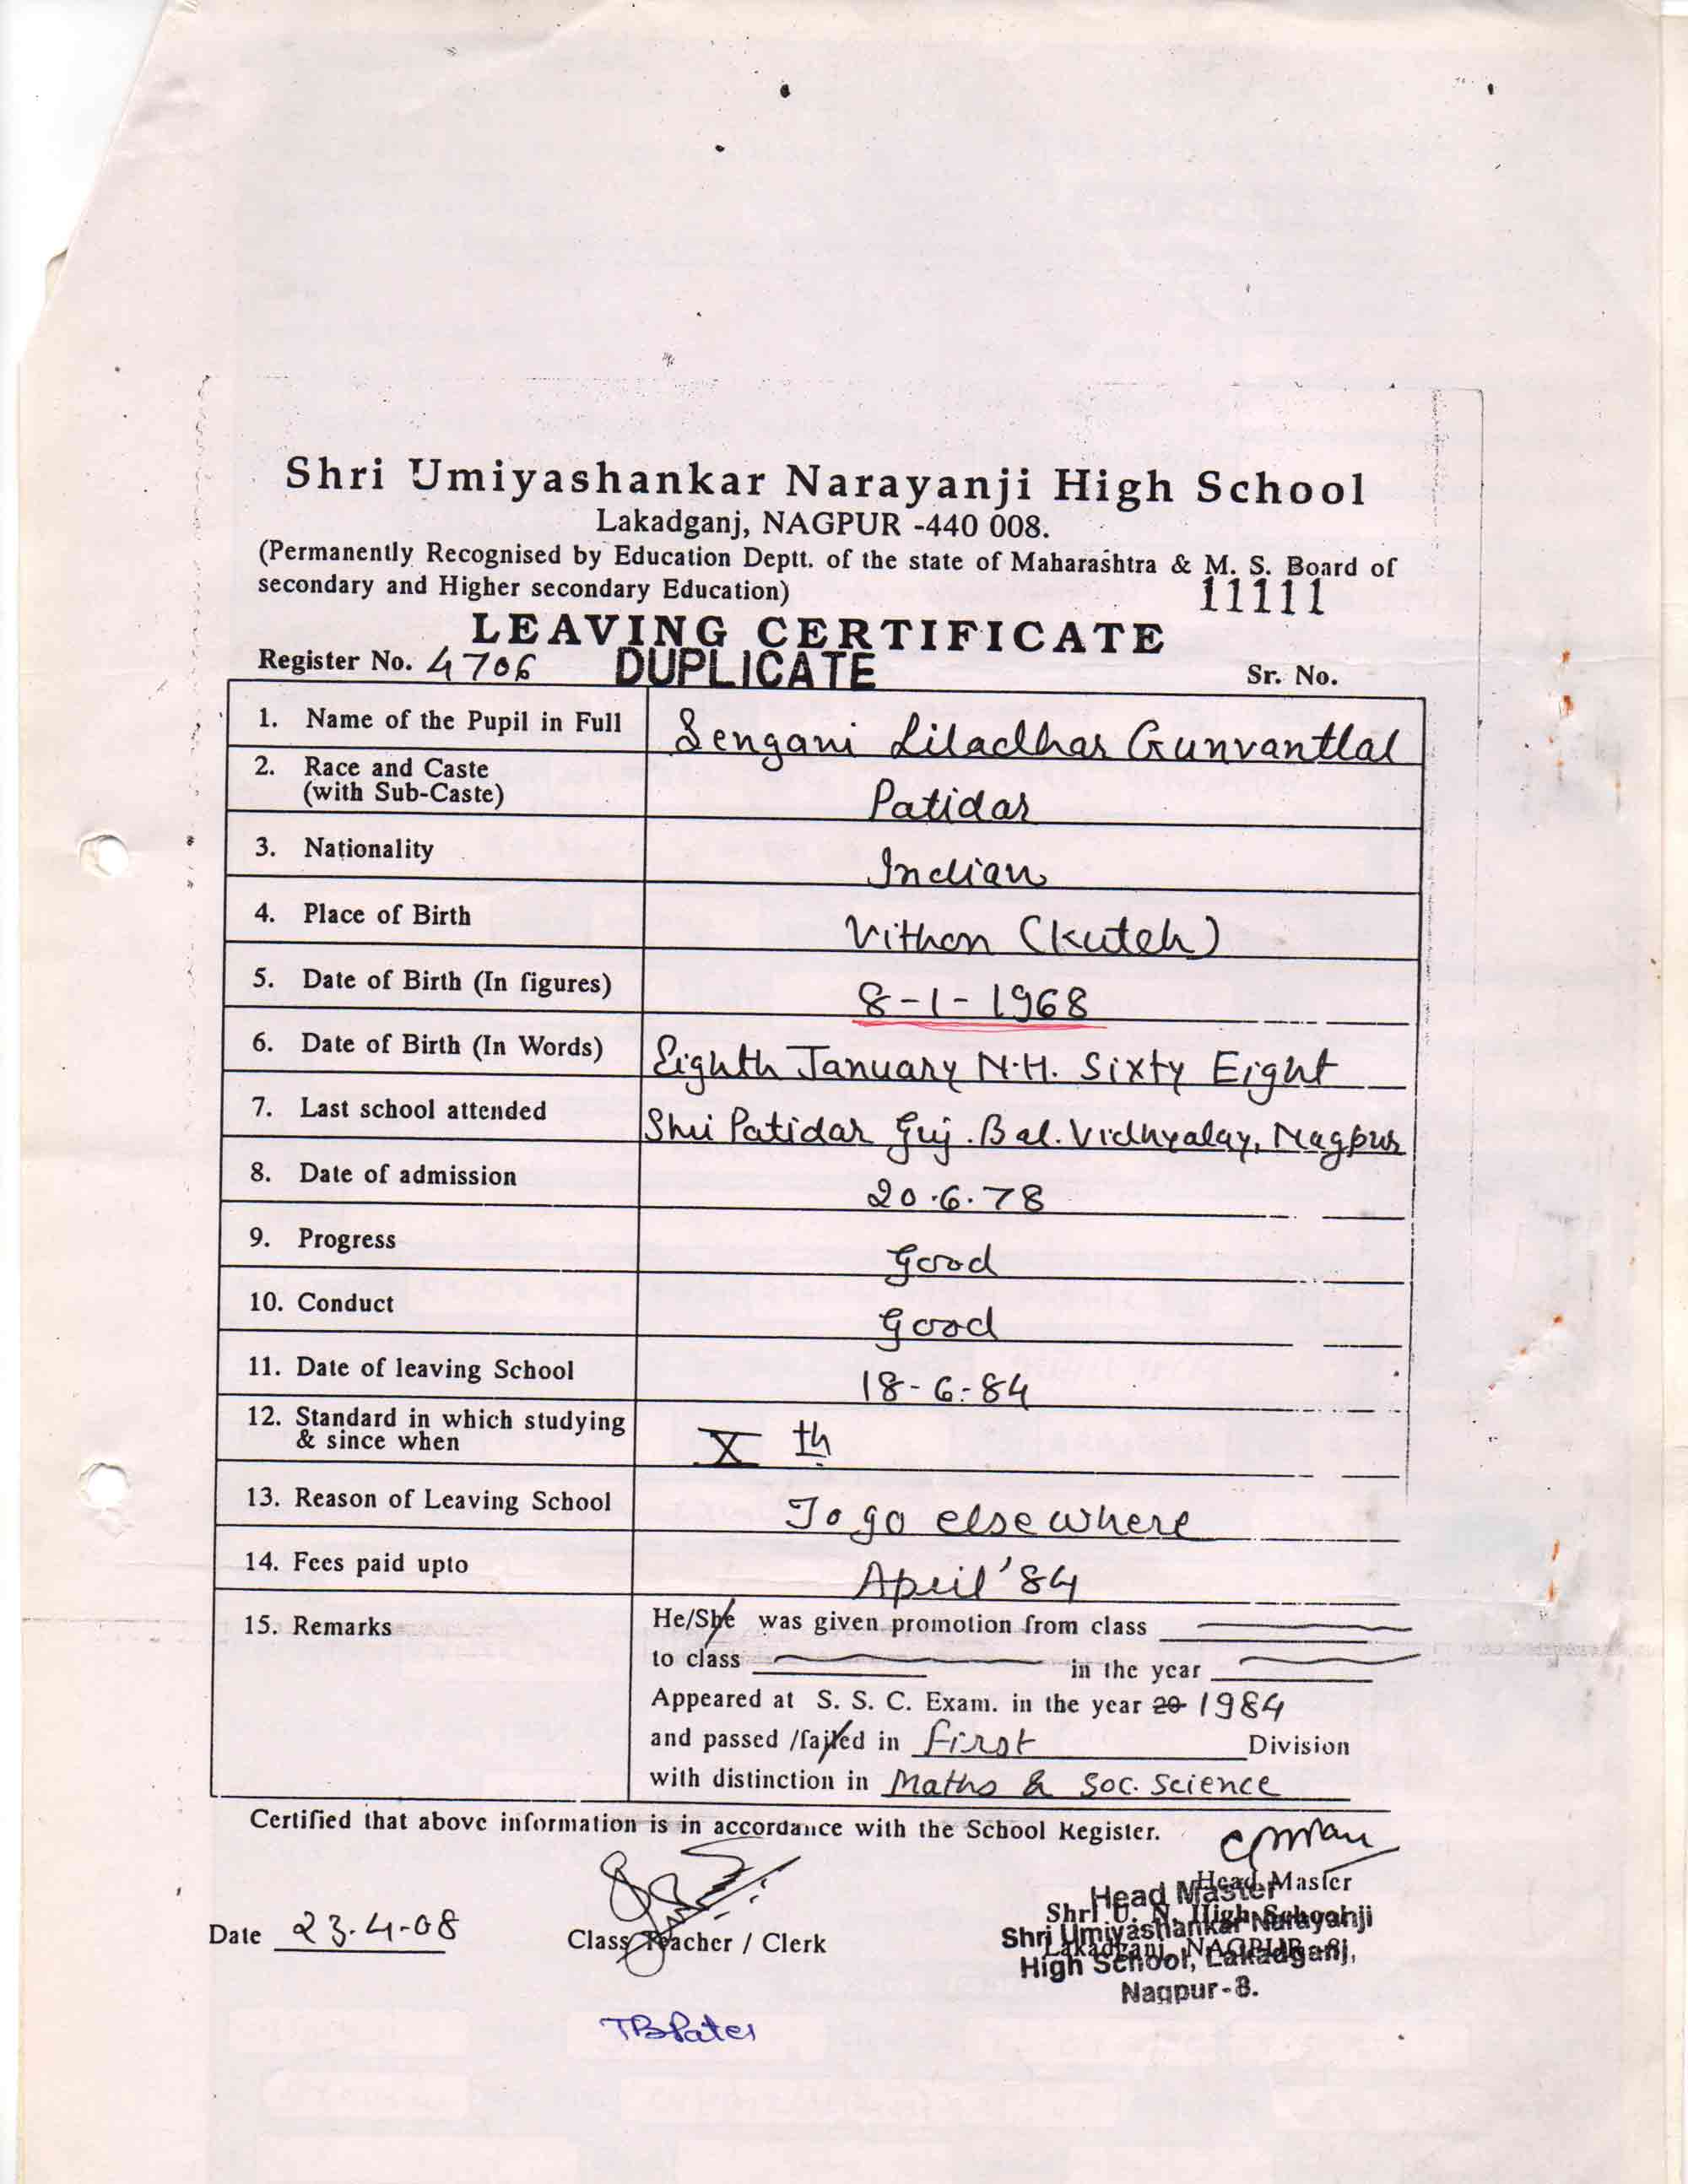 Shri Umiyashankar Narayanji High School
Lakadganj, NAGPUR -440 008.
(Permanently Recognised by Education Deptt. of the state of Maharashtra & M. S. Board of
secondary and Higher secondary Education)
11111
LEAVING CERTIFICATE
Register No. 4706 DUPLICATE Sr. No.
1. Name of the Pupil in Full Sengani Liladhar Gunvantlal
2. Race and Caste
(with Sub-Caste) Patidar
3. Nationality Indian
4. Place of Birth Vithon (Kutch)
5. Date of Birth (In figures) 8-1-1968
6. Date of Birth (In Words) Eighth January N.H. Sixty Eight
7. Last school attended Shri Patidar Guj. Bal. Vidhyalay, Nagpur
8. Date of admission 20.6.78
9. Progress Good
10. Conduct Good
11. Date of leaving School 18-6-84
12. Standard in which studying
& since when X th
13. Reason of Leaving School To go elsewhere
14. Fees paid upto April '84
15. Remarks He/She was given promotion from class
to class in the year
Appeared at S. S. C. Exam. in the year 20 1984
and passed /failed in First Division
with distinction in Maths & Soc. Science
Certified that above information is in accordance with the School Register.
Head Master
Head Master
Shri U. N. High School
Shri Umiyashankar Narayanji
Lakadganj, NAGPUR-8.
High School, Lakadganj,
Nagpur-8.
Date 23.4-08
Class Teacher / Clerk
TBPatel